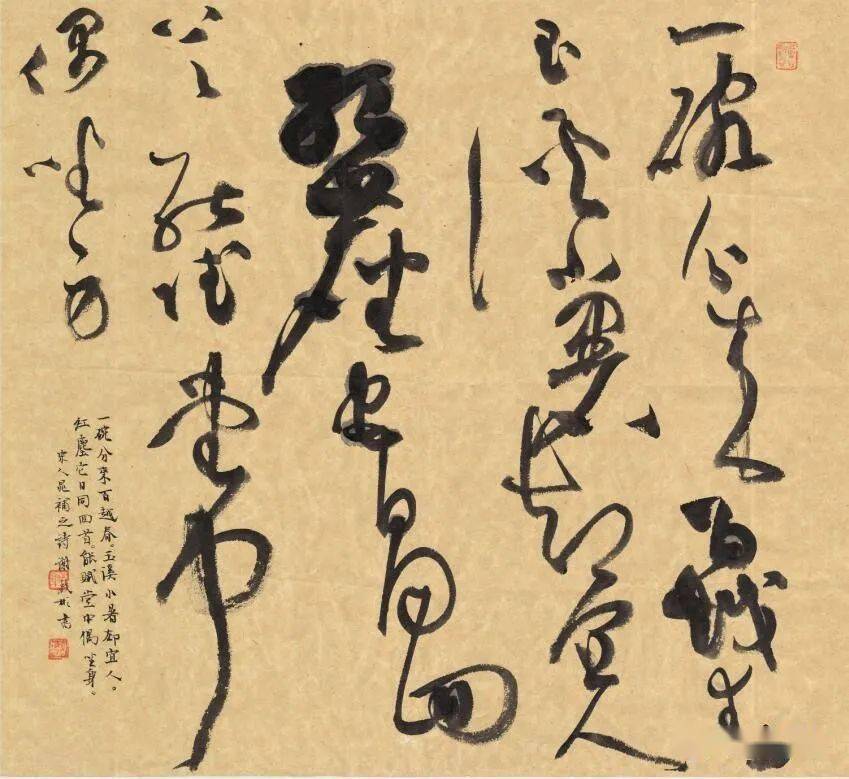 一碗分來百越春
玉溪小暑却宜人
紅塵它日同回
首能賦堂中
偶坐身
一碗分來百越春。玉溪小暑却宜人。
紅塵它日同回首。能賦堂中偶坐身。
宋人晁補之詩 謝彬書